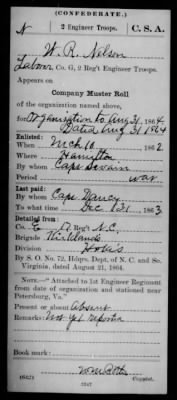 (CONFEDERATE.)
N 2 Engineer Troops. C. S. A.
W. R. Nelson
Co. G, 2 Reg't Engineer Troops.
Appears on
Company Muster Roll
of the organization named above,
for Organization to Aug 31, 1864
Dated Aug 31 1864
Enlisted:
When Mch 10 1862
Where Hamilton
By whom Capt
Period war
Last paid:
By whom Capt
To what time Dec 31, 1863
Detailed from:
Co. 17 Reg't N.C.
Brigade Kirkland
Division Hoke's
By S. O. No. 72, Hdqrs. Dept. of N. C. and So.
Virginia, dated August 21, 1864.
NOTE.—"Attached to 1st Engineer Regiment
from date of organization and stationed near
Petersburg, Va."
Present or absent Absent
Remarks: Not yet reported
Book mark:
Copyist.